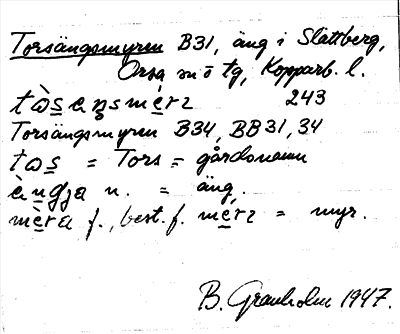 Torsängsmyren B31, äng i Slättberg,
Orsa sn ö tg, Kopparb. l.
tàs̲eṉsmèrz 243
Torsängsmyren B34, BB31, 34
tas̲ = Tors = gårdsnamn
èṉgja n. = äng.
mèra f., best. f. merz = myr.
B. Granholm 1947.